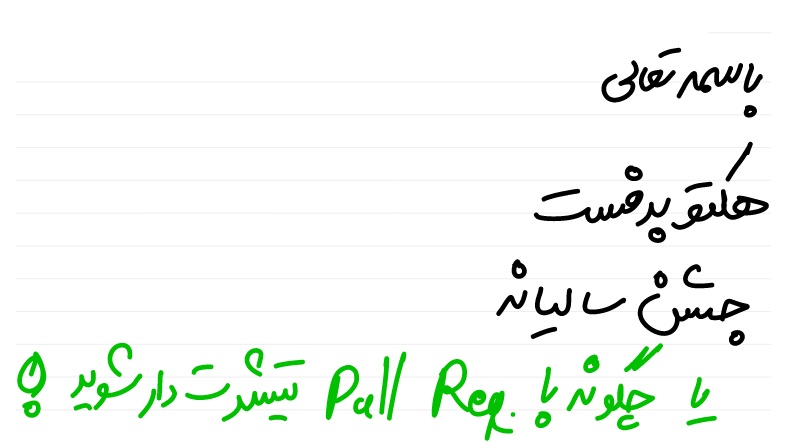 باسمه تعالی
هکتوبرفست
جشن سالیانه
یا چگونه با Pull Req. تیشرت دار شوید ؟